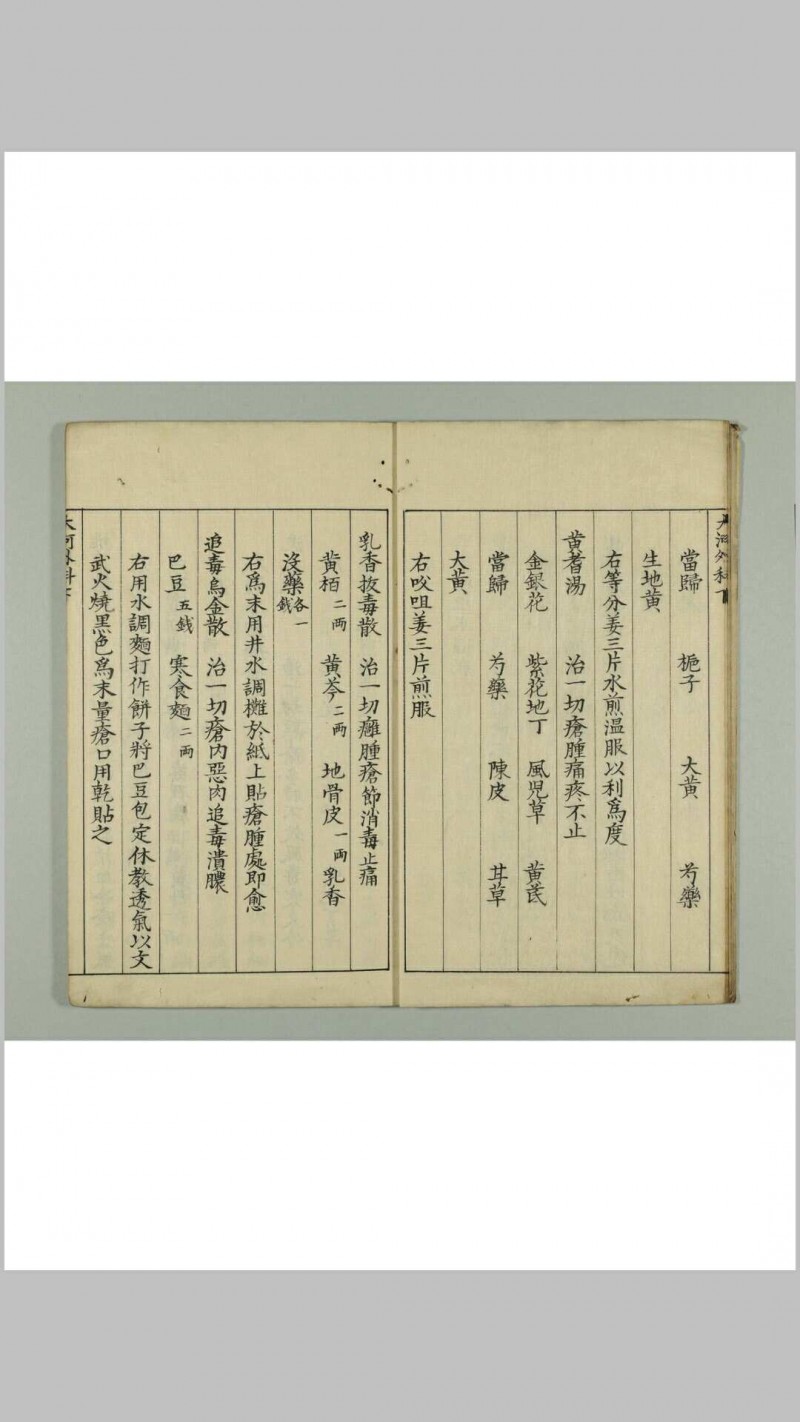 大河外科下
當歸 梔子 大黄 芍藥
生地黄
右等分姜三片水煎温服以利為度
黄耆湯 治一切瘡腫痛疼不止
金銀花 紫花地丁 風児草 黄芪
當歸 芍藥 陳皮 甘草
大黄
右㕮咀姜三片煎服
乳香拔毒散 治一切癰腫瘡節消毒止痛
黄栢二両 黄芩二両 地骨皮一両 乳香
沒藥各一錢
右為末用井水調攤於紙上貼瘡腫處即愈
追毒烏金散 治一切瘡内惡肉追毒潰膿
巴豆五錢 寒食麵二両
右用水調麵打作餅子將巴豆包定休教透氣以文
武火燒黑色為末量瘡口用乾貼之
大河外科下